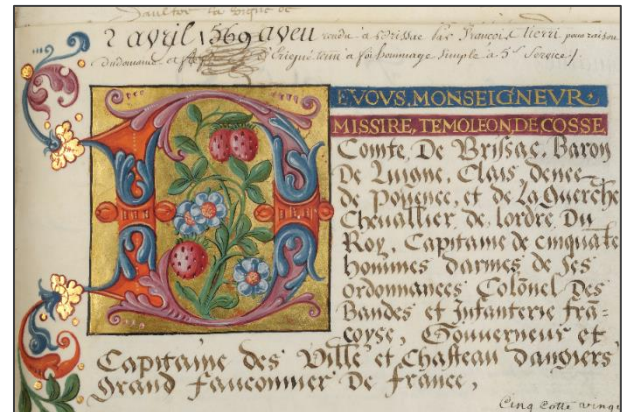 2 avril 1569 aveu rendu a Brissac par François tierri pour raison
du domaine et d'Erigné tenu a foi hommage simple a 5s service.
DEVOVS, MONSEIGNEVR
MISSIRE, TEMOLEON, DE COSSE,
Comte, De Brissac, Baron
De Luigne, Clais, denee
de pouence, et de La Guerche
Chevallier de lordre Du
Roy, Capitaine de cinquāte
hommes darmes de ses
ordonnances Colōnel Des
Bandes et Infanterie frā-
coyse, Gouverneur et
Capitaine des Ville et Chasteau dangiers
Grand fauconnier De france,
Cinq cotté vingt